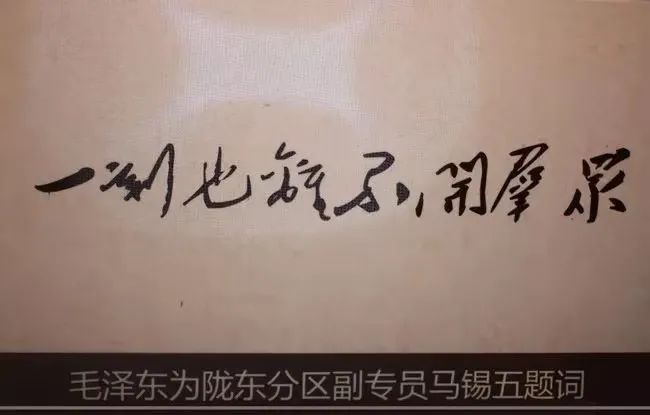 一刻也離不開羣眾
毛泽东为陇东分区副专员马锡五题词